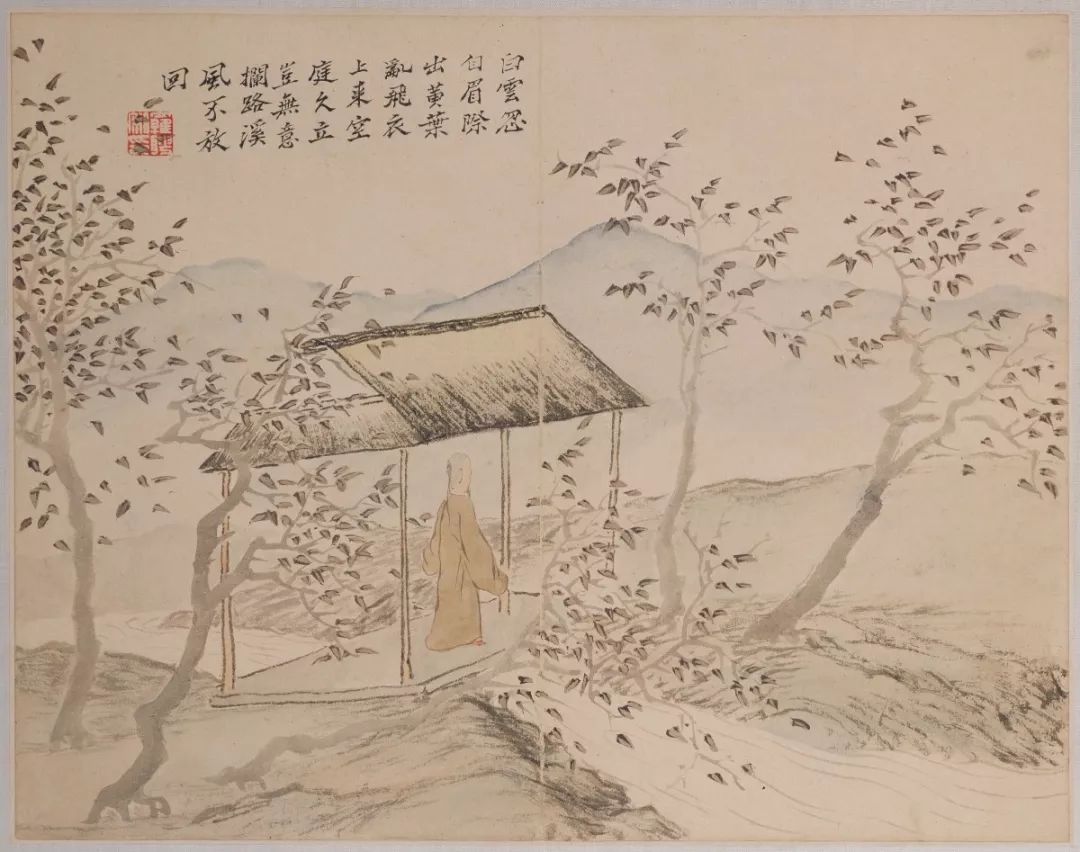 白雲忽
自眉際
出黃葉
亂飛衣
上來空
庭久立
豈無意
攔路溪
風不放
回